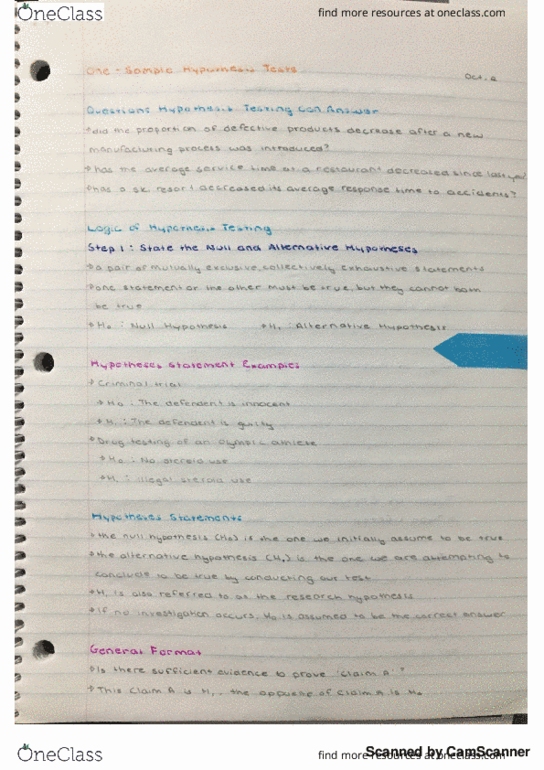 OneClass
find more resources at oneclass.com
One-Sample Hypothesis Tests
Oct. 2
Questions Hypothesis Testing Can Answer
did the proportion of defective products decrease after a new
manufacturing process was introduced?
has the average service time at a restaurant decreased since last year
has a ski resort decreased its average response time to accidents?
Logic of Hypothesis Testing
Step 1: State the Null and Alternative Hypotheses
a pair of mutually exclusive, collectively exhaustive statements
one statement or the other must be true, but they cannot both
be true
H₀: Null Hypothesis H₁: Alternative Hypothesis
Hypotheses Statement Examples
Criminal trial
H₀: The defendent is innocent
H₁: The defendent is guilty
Drug testing of an olympic athlete
H₀: No steroid use
H₁: illegal steroid use
Hypotheses Statements
the null hypothesis (H₀) is the one we initially assume to be true
the alternative hypothesis (H₁) is the one we are attempting to
conclude to be true by conducting our test
H₁ is also referred to as the research hypothesis
If no investigation occurs, H₀ is assumed to be the correct answer
General Format
Is there sufficient evidence to prove 'Claim A'?
This Claim A is H₁, the opposite of Claim A is H₀
OneClass
find more resources at oneclass.com
Scanned by CamScanner